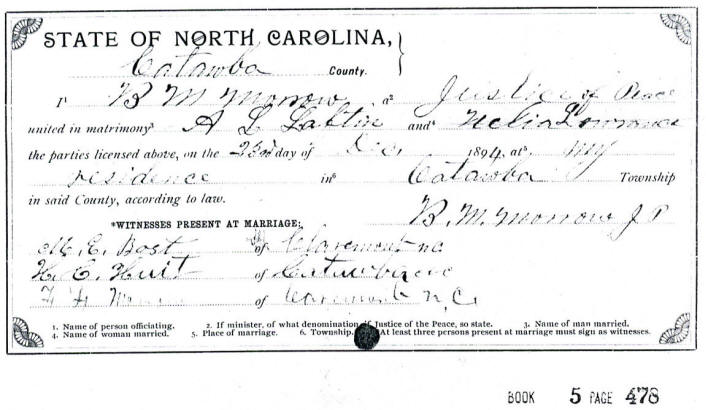 STATE OF NORTH CAROLINA,
Catawba County.
I¹ B M Morrow, a² Justice of Peace
united in matrimony³ A L and⁴ Lowrance
the parties licensed above, on the 23rd day of Dec, 1894, at⁵, my
residence in⁶ Catawba Township
in said County, according to law.
B. M. Morrow J P
*WITNESSES PRESENT AT MARRIAGE:
M. E. Bost of Claremont NC
H. E. Huit of Catawba NC
of Claremont N.C.
1. Name of person officiating. 2. If minister, of what denomination; if Justice of the Peace, so state. 3. Name of man married.
4. Name of woman married. 5. Place of marriage. 6. Township. At least three persons present at marriage must sign as witnesses.
BOOK 5 PAGE 478